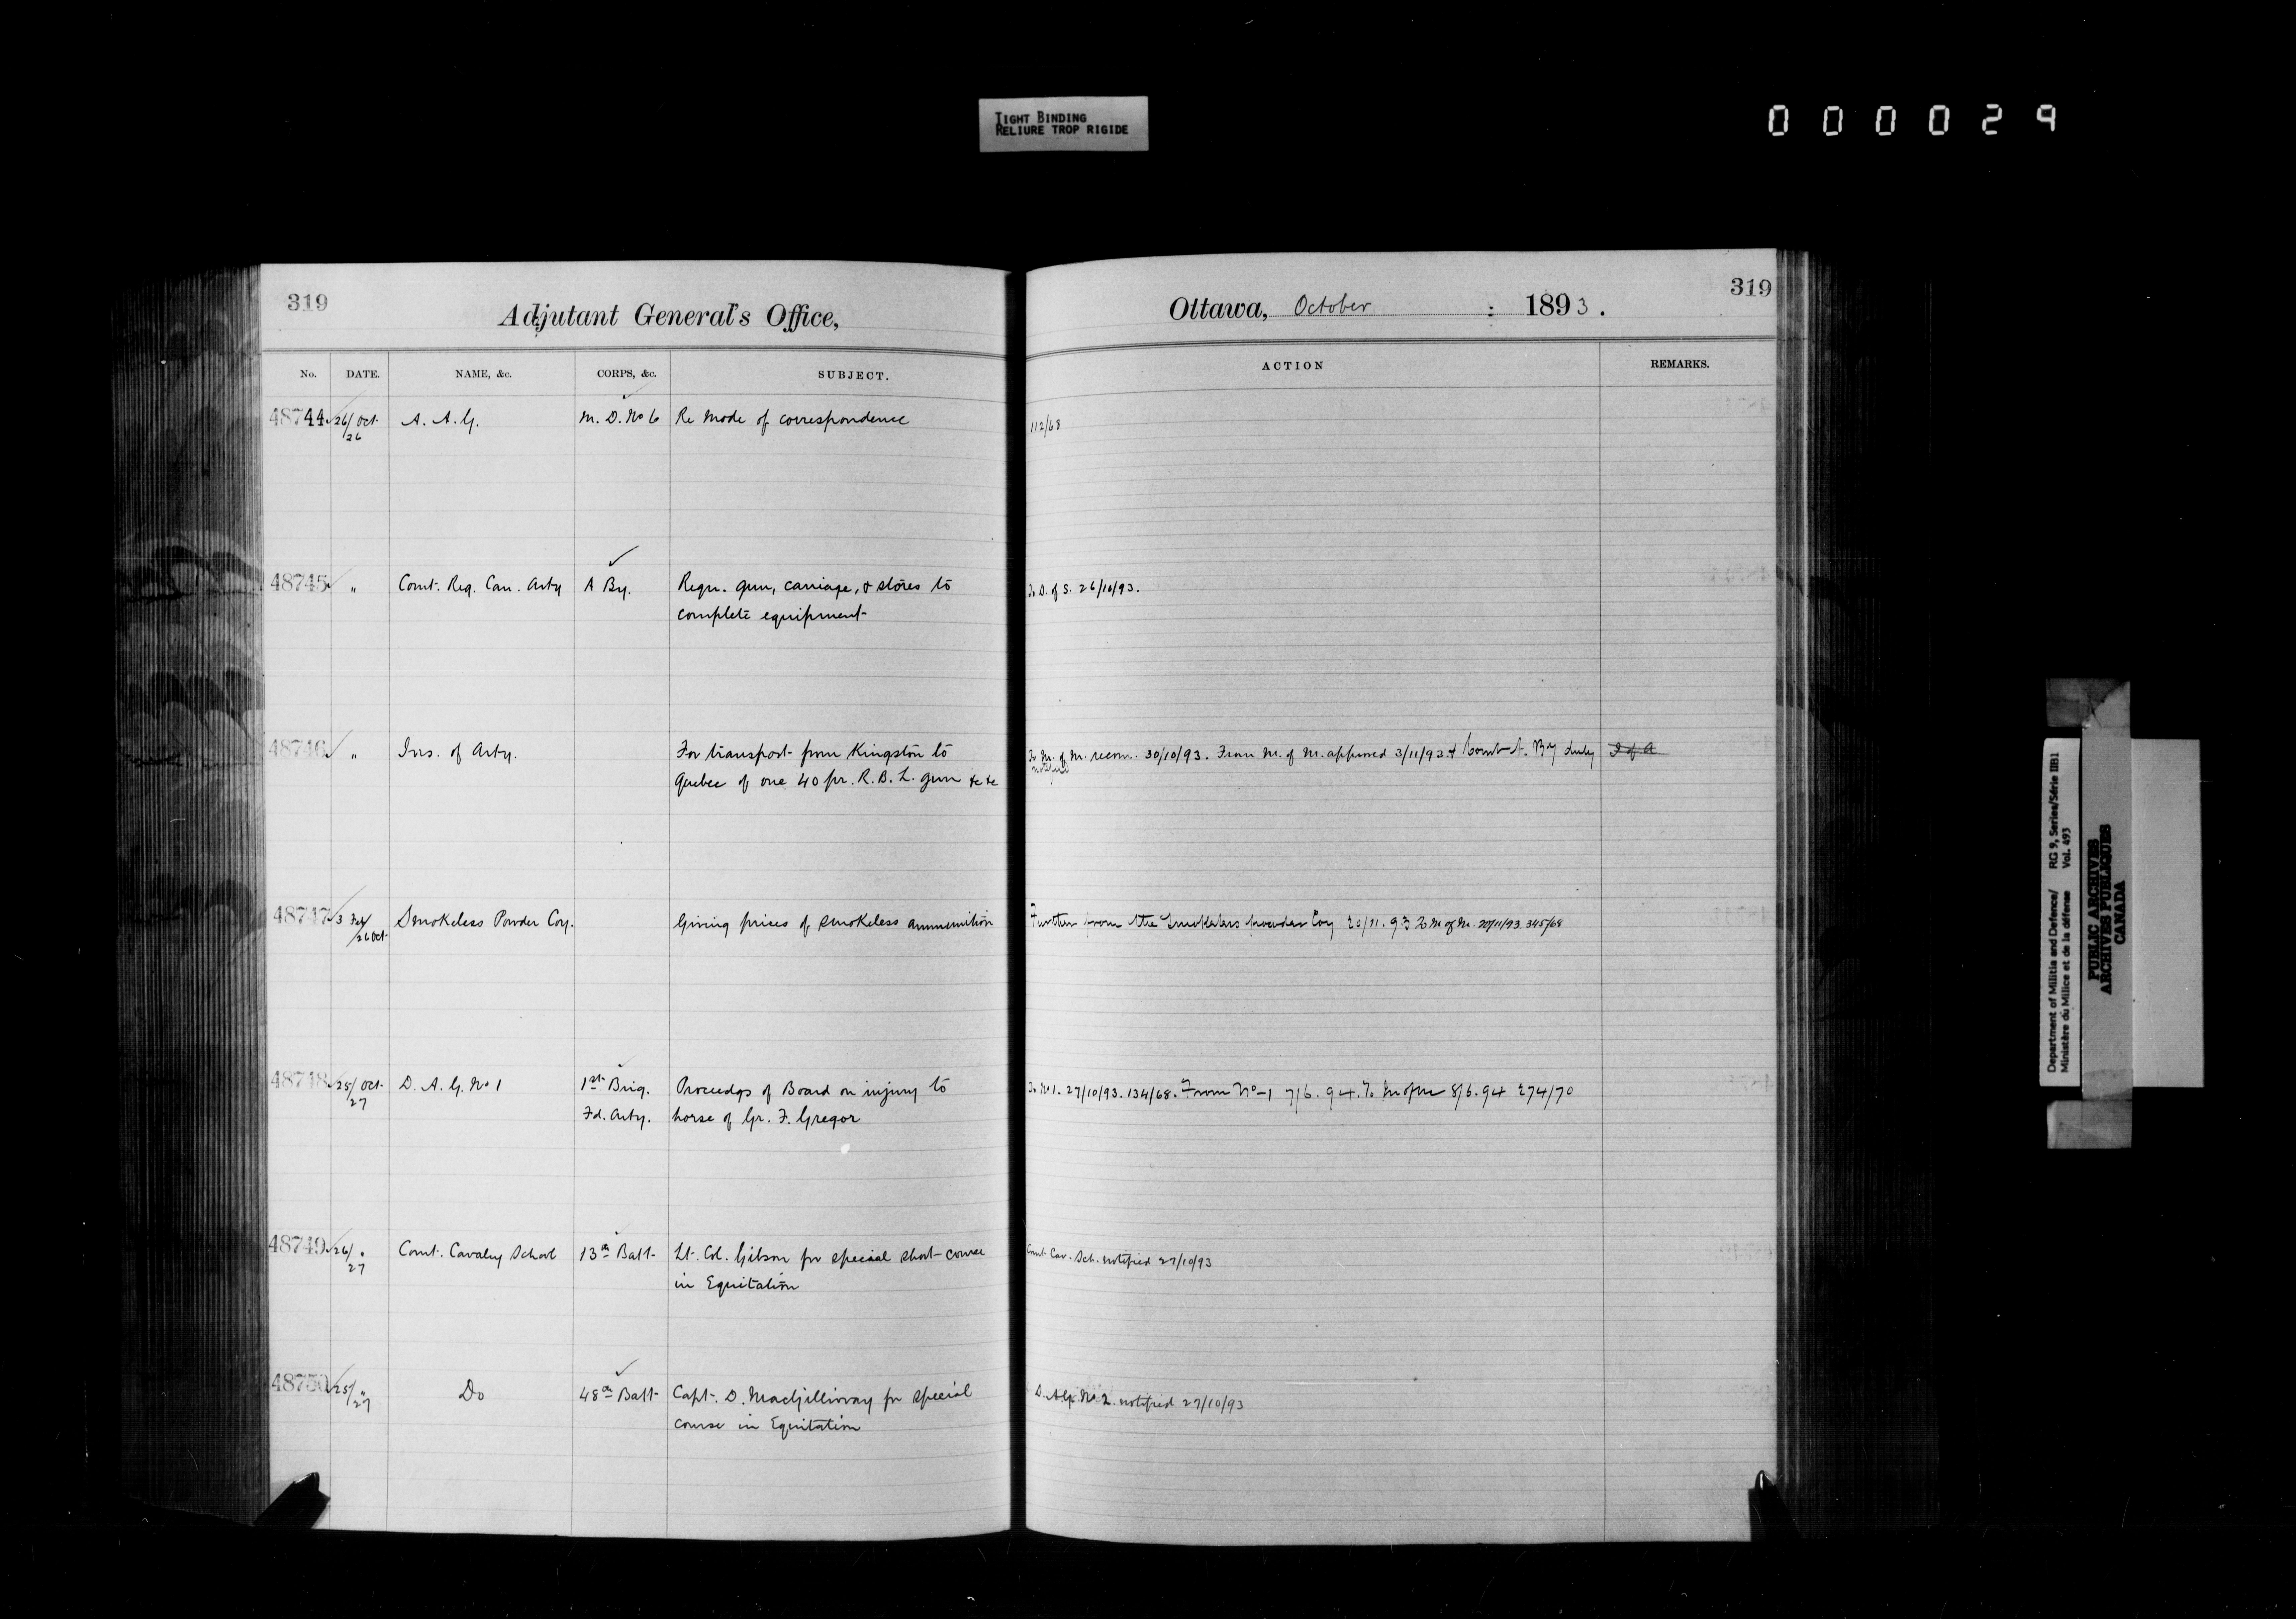 TIGHT BINDING
RELIURE TROP RIGIDE
000029
319
Adjutant General's Office,
No. DATE. NAME, &c. CORPS, &c. SUBJECT.
48744 26/26 Oct. A. A. G. M. D. No 6 Re Mode of correspondence
48745 " Comt. Reg. Can. Arty A By. Requ. gun, carriage, & stores to
complete equipment
48746 " Ins. of Arty. For transport from Kingston to
Quebec of one 40 pr. R. B. L. gun &c &c
48747 3 Feb/26 Oct. Smokeless Powder Coy. Giving prices of smokeless ammunition
48748 25/27 Oct. D. A. G. No 1 1st Brig. Proceedgs of Board on injury to
Fd. Arty. horse of Gr. F. Gregor
48749 26/27 " Comt. Cavalry School 13th Batt. Lt. Col. Gibson for special short course
in Equitation
48750 25/27 " Do 48th Batt Capt. D. MacGillivray for special
course in Equitation
319
Ottawa, October : 1893.
ACTION REMARKS.
112/68
To D. of S. 26/10/93.
To M. of M. recom. 30/10/93. From M. of M. approved 3/11/93 & Comt A. By duly I of A
notified
Further from the Smokeless powder Coy 20/11.93 To M of M. 20/11/93. 345/68
To No 1. 27/10/93. 134/68. From No 1 7/6.94. To M of M 8/6.94 274/70
Comt Cav. Sch. notified 27/10/93
D. A. G. No 2. notified 27/10/93
Department of Militia and Defence/ RG 9, Series/Série IIB1
Ministère du Milice et de la défense Vol. 493
PUBLIC ARCHIVES
ARCHIVES PUBLIQUES
CANADA